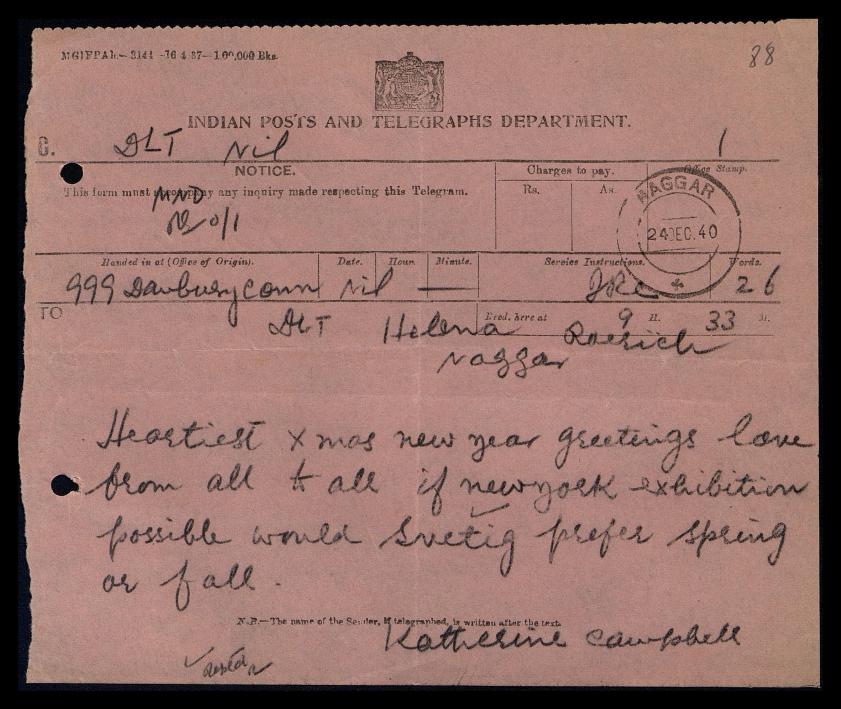 MGIFPAh.— 3144 -16 4 37— 1,00,000 Bks.
88
INDIAN POSTS AND TELEGRAPHS DEPARTMENT.
C. DLT Nil 1
NOTICE. Charges to pay. Office Stamp.
This form must accompany any inquiry made respecting this Telegram. Rs. As.
NAGGAR
24 DEC. 40
Handed in at (Office of Origin). Date. Hour. Minute. Service Instructions. Words.
999 Danbury conn Nil — 26
TO Recd. here at 9 H. 33 M.
DLT Helena Roerich
Naggar
Heartiest xmas new year greetings love
from all to all if newyork exhibition
possible would Svetig prefer spring
or fall.
N.B.—The name of the Sender, if telegraphed, is written after the text.
Katherine Campbell